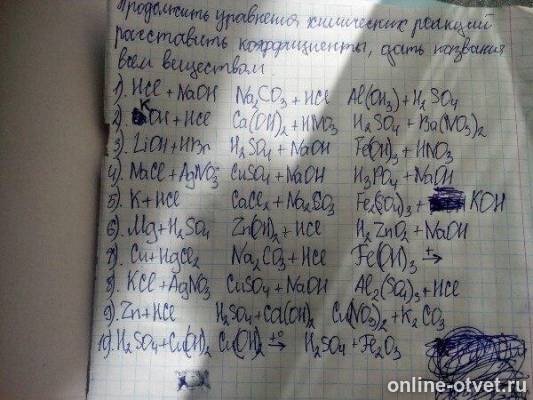 Продолжить уравнения химических реакций
расставить коэффициенты, дать названия
всем веществам.
1). HCl + NaOH Na2CO3 + HCl Al(OH)3 + H2SO4
2). KOH + HCl Ca(OH)2 + HNO3 H2SO4 + Ba(NO3)2
3). LiOH + HBr H2SO4 + NaOH Fe(OH)3 + HNO3
4). NaCl + AgNO3 CuSO4 + NaOH H3PO4 + NaOH
5). K + HCl CaCl2 + Na2SO3 Fe2(SO4)3 + KOH
6). Mg + H2SO4 Zn(OH)2 + HCl H2ZnO2 + NaOH
7). Cu + HgCl2 Na2CO3 + HCl Fe(OH)3 t→
8). KCl + AgNO3 CuSO4 + NaOH Al2(SO4)3 + HCl
9). Zn + HCl H2SO4 + Ca(OH)2 Cu(NO3)2 + K2CO3
10). H2SO4 + Cu(OH)2 Cu(OH)2 t°→ H2SO4 + Fe2O3
online-otvet.ru